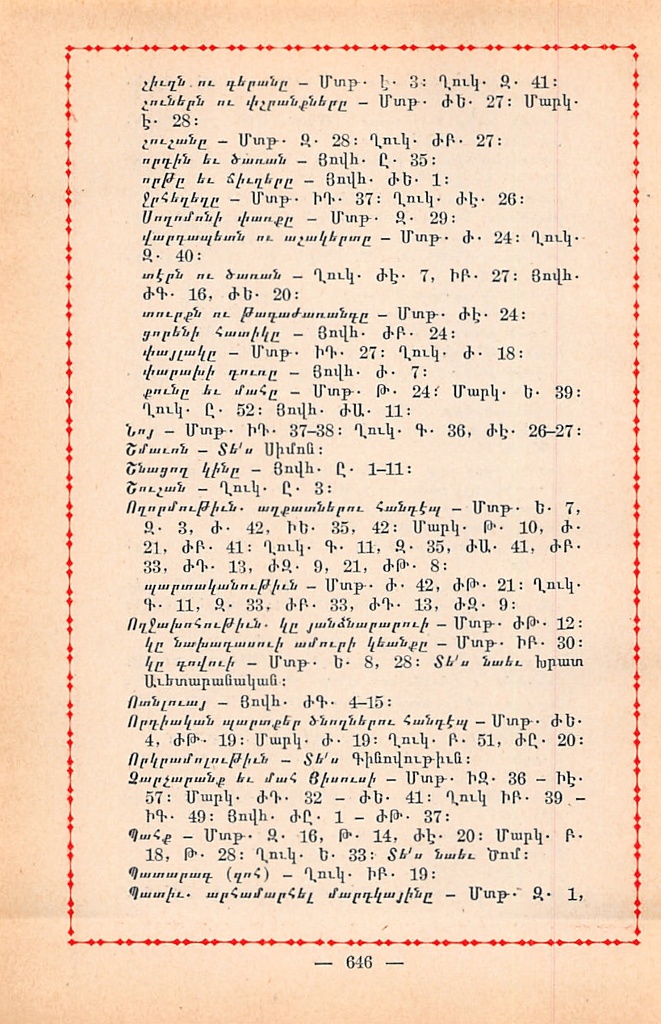 չիւղն ու գերանը – Մտթ. Է. 3: Ղուկ. Զ. 41:
շուներն ու փշրանքները – Մտթ. ԺԵ. 27: Մարկ.
Է. 28:
շուշանը – Մտթ. Զ. 28: Ղուկ. ԺԲ. 27:
որդին եւ ծառան – Յովհ. Ը. 35:
որթը եւ ճիւղերը – Յովհ. ԺԵ. 1:
Ջրհեղեղը – Մտթ. ԻԴ. 37: Ղուկ. ԺԷ. 26:
Սողոմոնի փառքը – Մտթ. Զ. 29:
վարդապետն ու աշակերտը – Մտթ. Ժ. 24: Ղուկ.
Զ. 40:
տէրն ու ծառան – Ղուկ. ԺԷ. 7, ԻԲ. 27: Յովհ.
ԺԳ. 16, ԺԵ. 20:
տուրքն ու թագաժառանգը – Մտթ. ԺԷ. 24:
ցորենի հատիկը – Յովհ. ԺԲ. 24:
փայլակը – Մտթ. ԻԴ. 27: Ղուկ. Ժ. 18:
փարախի դուռը – Յովհ. Ժ. 7:
քունը եւ մահը – Մտթ. Թ. 24: Մարկ. Ե. 39:
Ղուկ. Ը. 52: Յովհ. ԺԱ. 11:
Նոյ – Մտթ. ԻԴ. 37–38: Ղուկ. Գ. 36, ԺԷ. 26–27:
Շմաւոն – Տե՛ս Սիմոն:
Շնացող կինը – Յովհ. Ը. 1–11:
Շուշան – Ղուկ. Ը. 3:
Ողորմութիւն. աղքատներու հանդէպ – Մտթ. Ե. 7,
Զ. 3, Ժ. 42, ԻԵ. 35, 42: Մարկ. Թ. 10, Ժ.
21, ԺԲ. 41: Ղուկ. Գ. 11, Զ. 35, ԺԱ. 41, ԺԲ.
33, ԺԴ. 13, ԺԶ. 9, 21, ԺԹ. 8:
պարտականութիւն – Մտթ. Ժ. 42, ԺԹ. 21: Ղուկ.
Գ. 11, Զ. 33, ԺԲ. 33, ԺԴ. 13, ԺԶ. 9:
Ողջախոհութիւն. կը յանձնարարուի – Մտթ. ԺԹ. 12:
կը նախադասուի ամուրի կեանքը – Մտթ. ԻԲ. 30:
կը գովուի – Մտթ. Ե. 8, 28: Տե՛ս նաեւ Խրատ
Աւետարանական:
Ոտնլուայ – Յովհ. ԺԳ. 4–15:
Որդիական պարտքեր ծնողներու հանդէպ – Մտթ. ԺԵ.
4, ԺԹ. 19: Մարկ. Ժ. 19: Ղուկ. Բ. 51, ԺԸ. 20:
Որկրամոլութիւն – Տե՛ս Գինովութիւն:
Չարչարանք եւ մահ Յիսուսի – Մտթ. ԻԶ. 36 – ԻԷ.
57: Մարկ. ԺԴ. 32 – ԺԵ. 41: Ղուկ ԻԲ. 39 –
ԻԳ. 49: Յովհ. ԺԸ. 1 – ԺԹ. 37:
Պահք – Մտթ. Զ. 16, Թ. 14, ԺԷ. 20: Մարկ. Բ.
18, Թ. 28: Ղուկ. Ե. 33: Տե՛ս նաեւ Ծոմ:
Պատարագ (զոհ) – Ղուկ. ԻԲ. 19:
Պատիւ. արհամարհել մարդկայինը – Մտթ. Զ. 1,
— 646 —